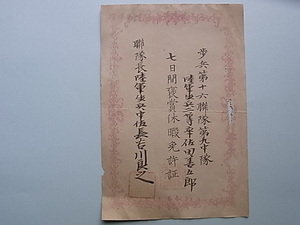 歩兵第十六聯隊第九中隊
陸軍歩兵二等卒佐田善五郎
七日間褒賞休暇免許証
聯隊長陸軍歩兵中佐長谷川良之